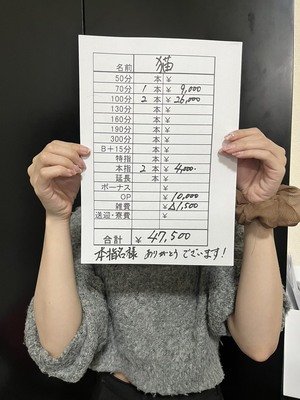 名前 猫
50分 本 ¥
70分 1 本 ¥ 9,000
100分 2 本 ¥ 26,000
130分 本 ¥
160分 本 ¥
190分 本 ¥
300分 本 ¥
B+15分 本 ¥
特指 本 ¥
本指 2 本 ¥ 4,000-
延長 本 ¥
ボーナス ¥
OP ¥ 10,000
雑費 ¥ △1,500
送迎・寮費 ¥
合計 ¥ 47,500
本指名様 ありがとうございます!